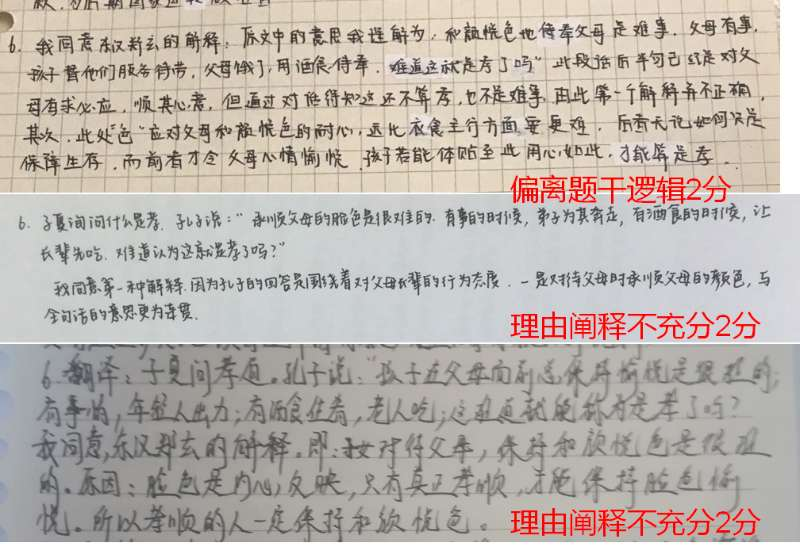 6. 我同意东汉郑玄的解释，原文中的意思我理解为，和颜悦色地侍奉父母是难事。父母有事，
孩子替他们服务待劳，父母饿了，用酒食侍奉，难道这就是孝了吗" 此段话后半句已经是对父
母有求必应，顺其心意，但通过对 得知这还不算孝，也不是难事，由此第一个解释并不正确，
其次，此处"色"应对父母和颜悦色的耐心，远比衣食住行方面要更难，后者无论如何只是
保障生存，而前者才令父母心情愉悦，孩子若能体贴至此，用心如此，才能算是孝。
偏离题干逻辑2分
6. 子夏询问什么是孝，孔子说："承顺父母的脸色是很难的。有事的时候，弟子为其奔走，有酒食的时候，让
长辈先吃，难道认为这就是孝了吗?"
我同意第一种解释，因为孔子的回答是围绕着对父母长辈的行为态度，一是对待父母时承顺父母的颜色，与
全句话的意思更为连贯。
理由阐释不充分2分
6. 翻译：子夏问孝道。孔子说："孩子在父母面前总保持愉悦是很难的;
有事情，年轻人出力；有酒食佳肴，老人吃；这难道就能称为是孝了吗?
我同意，东汉郑玄的解释。即：子女对待父母，保持和颜悦色是很难
的。原因：脸色是内心反映，只有真正孝顺，才能保持脸色愉
悦。所以孝顺的人一定保持和颜悦色。
理由阐释不充分2分